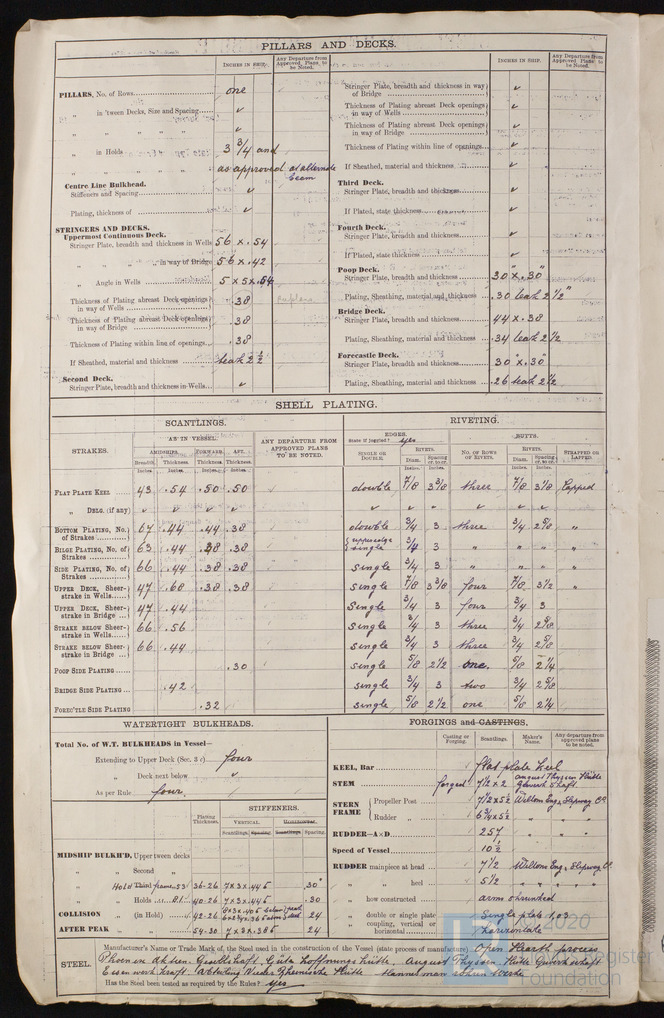 PILLARS AND DECKS.
INCHES IN SHIP.
Any Departure from Approved Plans, to be Noted.
PILLARS, No. of Rows one
" in 'tween Decks, Size and Spacing ✓
" " " " ✓
" in Holds 3 3/4 and
" " " " as approved at alternate beam
Centre Line Bulkhead.
Stiffeners and Spacing ✓
Plating, thickness of ✓
STRINGERS AND DECKS.
Uppermost Continuous Deck.
Stringer Plate, breadth and thickness in Wells 56 x .54
" " " " in way of Bridge 56 x .42
" Angle in Wells 5 x 5 x .54
Thickness of Plating abreast Deck openings in way of Wells .38
Thickness of Plating abreast Deck openings in way of Bridge .38
Thickness of Plating within line of openings .38
If Sheathed, material and thickness teak 2 1/2
Second Deck.
Stringer Plate, breadth and thickness in Wells ✓
INCHES IN SHIP.
Any Departure from Approved Plans to be Noted.
Stringer Plate, breadth and thickness in way of Bridge ✓
Thickness of Plating abreast Deck openings in way of Wells ✓
Thickness of Plating abreast Deck openings in way of Bridge ✓
Thickness of Plating within line of openings ✓
If Sheathed, material and thickness ✓
Third Deck.
Stringer Plate, breadth and thickness ✓
If Plated, state thickness ✓
Fourth Deck.
Stringer Plate, breadth and thickness ✓
If Plated, state thickness ✓
Poop Deck.
Stringer Plate, breadth and thickness 30 x .30"
Plating, Sheathing, material and thickness .30 teak 2 1/2"
Bridge Deck.
Stringer Plate, breadth and thickness 44 x .38
Plating, Sheathing, material and thickness .34 teak 2 1/2
Forecastle Deck.
Stringer Plate, breadth and thickness 30" x .30"
Plating, Sheathing, material and thickness .26 teak 2 1/2
SHELL PLATING.
SCANTLINGS.
RIVETING.
STRAKES.
AS IN VESSEL.
AMIDSHIPS. FORWARD. AFT.
Breadth. Thickness. Thickness. Thickness.
Inches. Inches. Inches. Inches.
ANY DEPARTURE FROM APPROVED PLANS TO BE NOTED.
EDGES.
State if joggled? yes
SINGLE OR DOUBLE.
RIVETS.
Diam. Spacing cr. to cr.
Inches. Inches.
BUTTS.
No. OF ROWS OF RIVETS.
RIVETS.
Diam. Spacing cr. to cr.
Inches. Inches.
STRAPPED OR LAPPED
FLAT PLATE KEEL 43 .54 .50 .50 double 7/8 3 3/8 three 7/8 3 1/8 Lapped
" DBLG. (if any) ✓ ✓ ✓ ✓ ✓ ✓ ✓ ✓ ✓ ✓
BOTTOM PLATING, No. of Strakes 67 .44 .44 .38 double 3/4 3 three 3/4 2 5/8 "
BILGE PLATING, No. of Strakes 63 .44 .38 .38 upper edge single 3/4 3 " " " "
SIDE PLATING, No. of Strakes 66 .44 .38 .38 single 3/4 3 " " " "
UPPER DECK, Sheer-strake in Wells 47 .68 .38 .38 single 7/8 3 3/8 four 7/8 3 1/2 "
UPPER DECK, Sheer-strake in Bridge 47 .44 single 3/4 3 four 3/4 3
STRAKE BELOW Sheer-strake in Wells 66 .56 single 3/4 3 three 3/4 2 5/8
STRAKE BELOW Sheer-strake in Bridge 66 .44 single 3/4 3 three 3/4 2 5/8
POOP SIDE PLATING .30 single 5/8 2 1/2 one 5/8 2 1/4
BRIDGE SIDE PLATING .42 single 3/4 3 two 3/4 2 5/8
FOREC'TLE SIDE PLATING .32 single 5/8 2 1/2 one 5/8 2 1/4
WATERTIGHT BULKHEADS.
Total No. of W.T. BULKHEADS in Vessel—
Extending to Upper Deck (Sec. 3 c) four
" Deck next below ✓
As per Rule four
STIFFENERS.
Plating Thickness.
VERTICAL. HORIZONTAL.
Scantlings. Spacing. Scantlings. Spacing.
MIDSHIP BULKH'D, Upper tween decks
" " Second "
" " Hold Third frame 53 36-26 7 x 3 x .445 30"
" " Holds 81 40-26 7 x 3 x .445 30
COLLISION " (in Hold) 42-26 24
AFTER PEAK " " 54-30 7 x 3 x .385 24
FORGINGS and CASTINGS.
Casting or Forging.
Scantlings.
Maker's Name.
Any departure from approved plans to be noted.
KEEL, Bar flat plate keel
STEM forged 7 1/2 x 2 August Thyssen Hütte Gewerkschaft.
STERN FRAME
Propeller Post 7 1/2 x 5 1/2 Weltons Eng. & Slipway Co.
Rudder " 6 3/4 x 5 1/2 " " "
RUDDER—A×D 257
Speed of Vessel 10 1/2
RUDDER mainpiece at head 7 1/2 Weltons Eng. & Slipway Co
" " heel 5 1/2 " " " "
" how constructed arms shrunked
" double or single plate Single plate 1,03
" coupling, vertical or horizontal horizontale
STEEL.
Manufacturer's Name or Trade Mark of, the Steel used in the construction of the Vessel (state process of manufacture) Open Hearth process
Phoenix Aktien Gesellschaft, Gute Hoffnungs hütte, August Thyssen Hütte Gewerkschaft
Eisenwerk Kraft. Abteilung Nieder Rheinische Hütte
Has the Steel been tested as required by the Rules? yes
© 2020
Lloyd's Register
Foundation